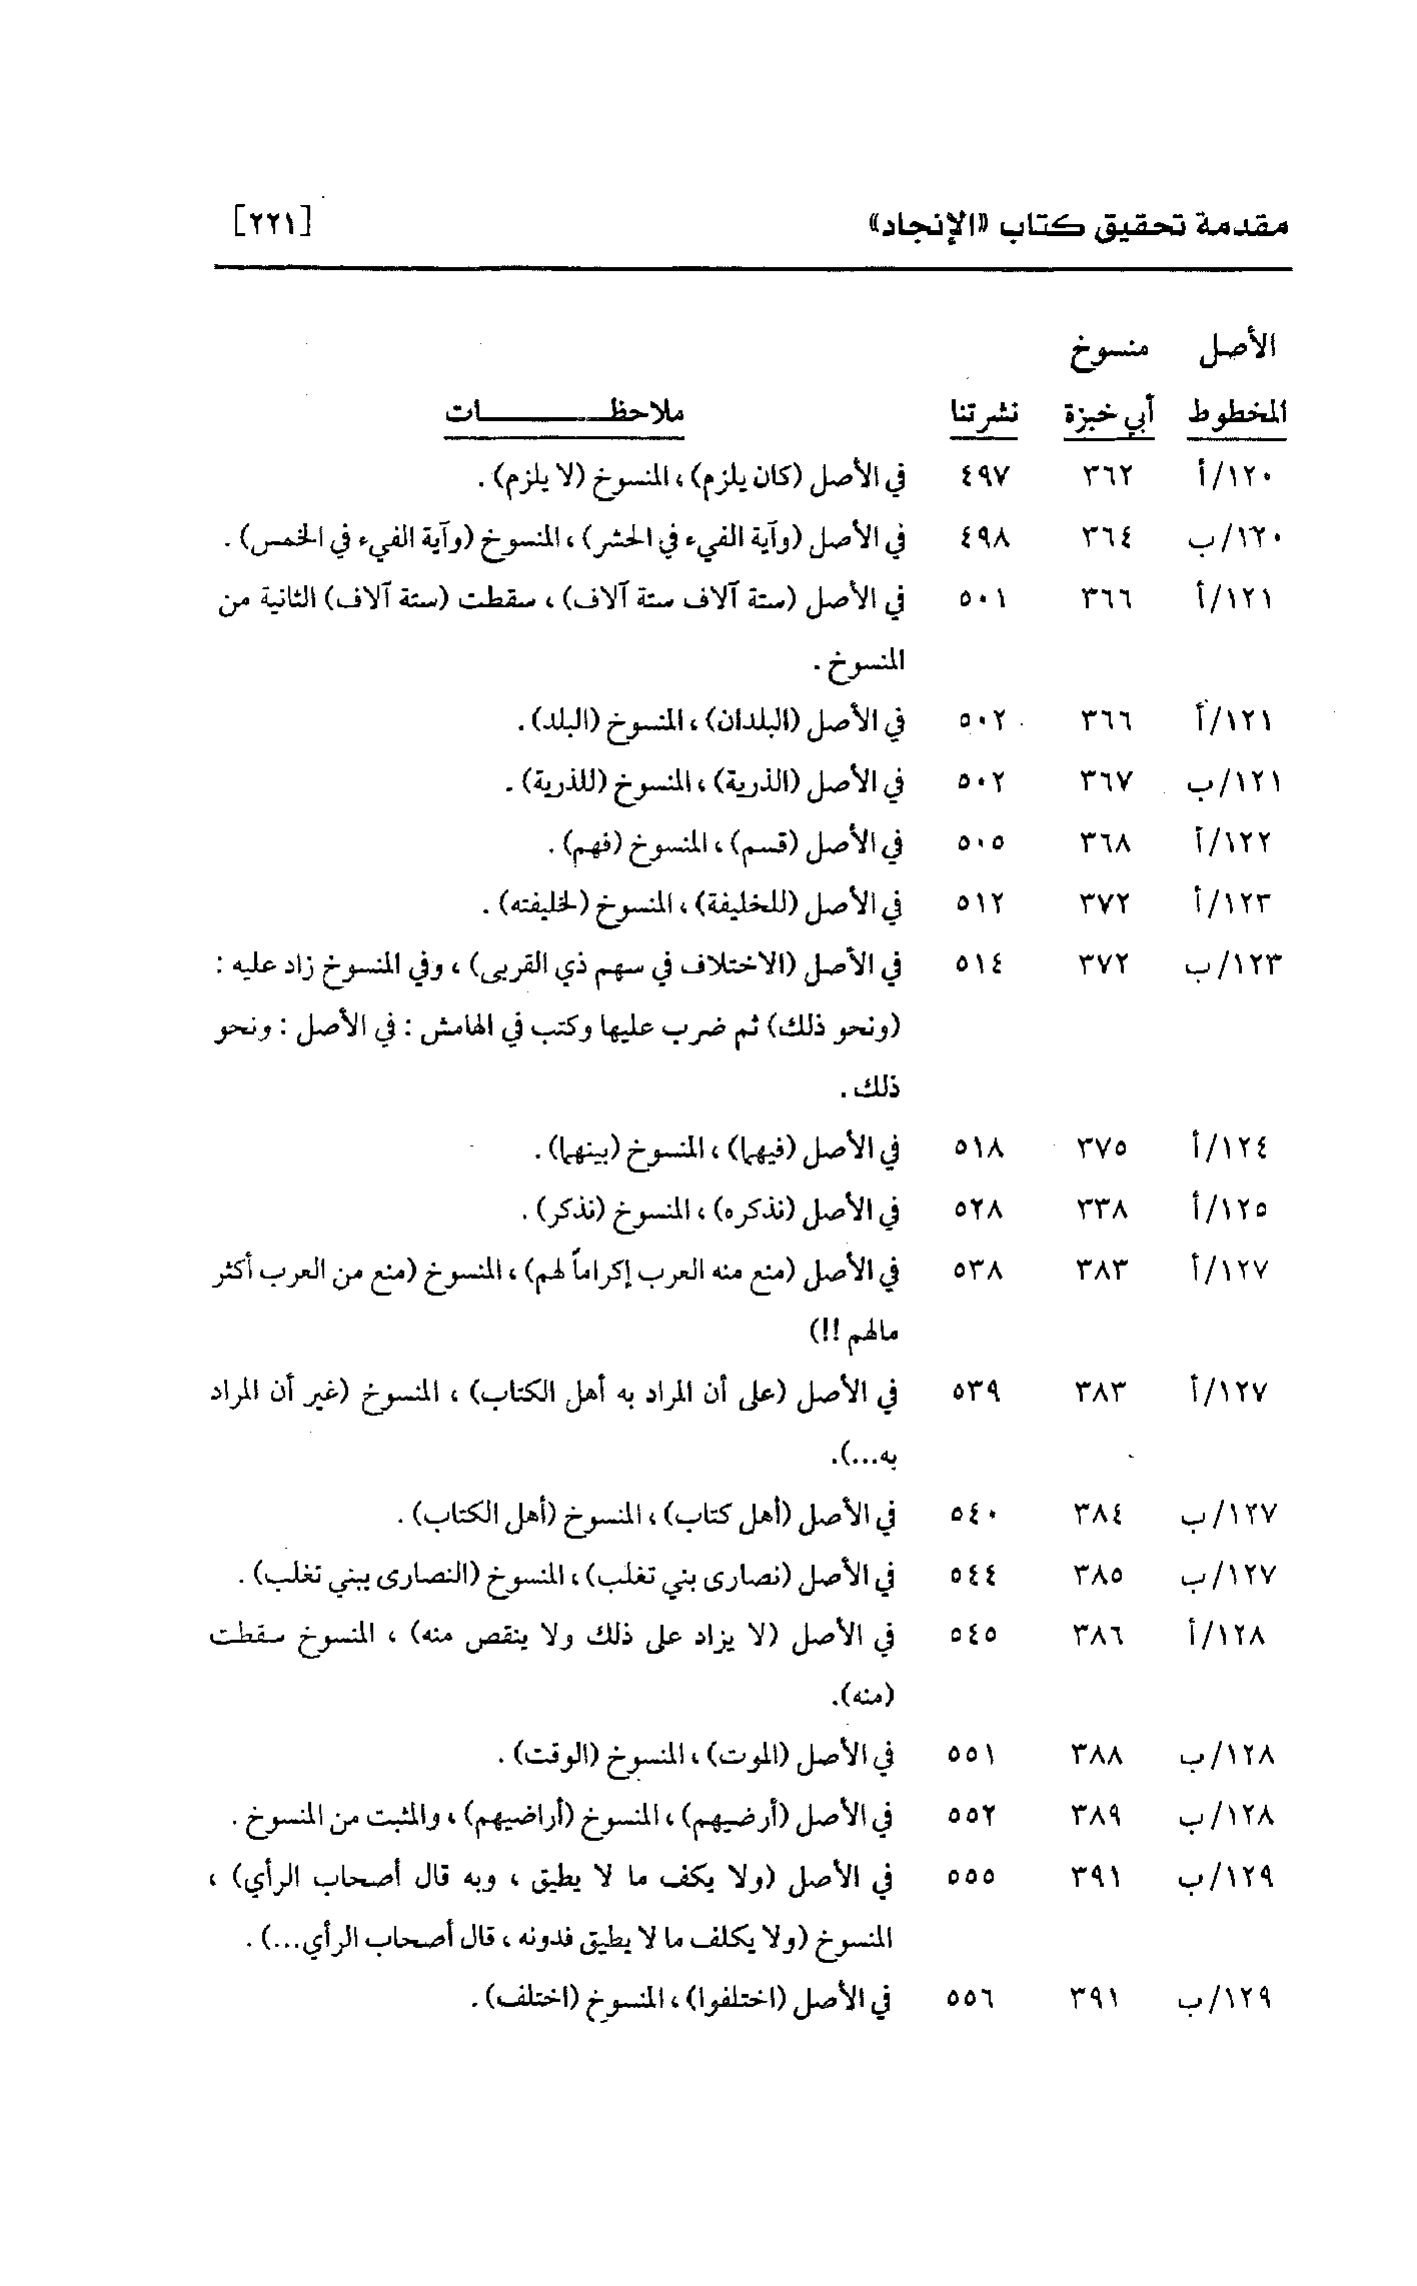 مقدمة تحقيق كتاب «الإنجاد» [٢٢١]
الأصل منسوخ
المخطوط أبي خبزة نشرتنا ملاحظـــــــــات
١٢٠/أ ٣٦٢ ٤٩٧ في الأصل (كان يلزم)، المنسوخ (لا يلزم).
١٢٠/ب ٣٦٤ ٤٩٨ في الأصل (وآية الفيء في الحشر)، المنسوخ (وآية الفيء في الخمس).
١٢١/أ ٣٦٦ ٥٠١ في الأصل (ستة آلاف ستة آلاف)، سقطت (ستة آلاف) الثانية من
المنسوخ.
١٢١/أ ٣٦٦ ٥٠٢ في الأصل (البلدان)، المنسوخ (البلد).
١٢١/ب ٣٦٧ ٥٠٢ في الأصل (الذرية)، المنسوخ (للذرية).
١٢٢/أ ٣٦٨ ٥٠٥ في الأصل (قسم)، المنسوخ (فهم).
١٢٣/أ ٣٧٢ ٥١٢ في الأصل (للخليفة)، المنسوخ (لخليفته).
١٢٣/ب ٣٧٢ ٥١٤ في الأصل (الاختلاف في سهم ذي القربى)، وفي المنسوخ زاد عليه:
(ونحو ذلك) ثم ضرب عليها وكتب في الهامش: في الأصل: ونحو
ذلك.
١٢٤/أ ٣٧٥ ٥١٨ في الأصل (فيهما)، المنسوخ (بينهما).
١٢٥/أ ٣٣٨ ٥٢٨ في الأصل (نذكره)، المنسوخ (نذكر).
١٢٧/أ ٣٨٣ ٥٣٨ في الأصل (منع منه العرب إكراماً لهم)، المنسوخ (منع من العرب أكثر
مالهم!!)
١٢٧/أ ٣٨٣ ٥٣٩ في الأصل (على أن المراد به أهل الكتاب)، المنسوخ (غير أن المراد
به...).
١٢٧/ب ٣٨٤ ٥٤٠ في الأصل (أهل كتاب)، المنسوخ (أهل الكتاب).
١٢٧/ب ٣٨٥ ٥٤٤ في الأصل (نصارى بني تغلب)، المنسوخ (النصارى ببني تغلب).
١٢٨/أ ٣٨٦ ٥٤٥ في الأصل (لا يزاد على ذلك ولا ينقص منه)، المنسوخ سقطت
(منه).
١٢٨/ب ٣٨٨ ٥٥١ في الأصل (الموت)، المنسوخ (الوقت).
١٢٨/ب ٣٨٩ ٥٥٢ في الأصل (أرضيهم)، المنسوخ (أراضيهم)، والمثبت من المنسوخ.
١٢٩/ب ٣٩١ ٥٥٥ في الأصل (ولا يكف ما لا يطيق، وبه قال أصحاب الرأي)،
المنسوخ (ولا يكلف ما لا يطيق فدونه، قال أصحاب الرأي...).
١٢٩/ب ٣٩١ ٥٥٦ في الأصل (اختلفوا)، المنسوخ (اختلف).